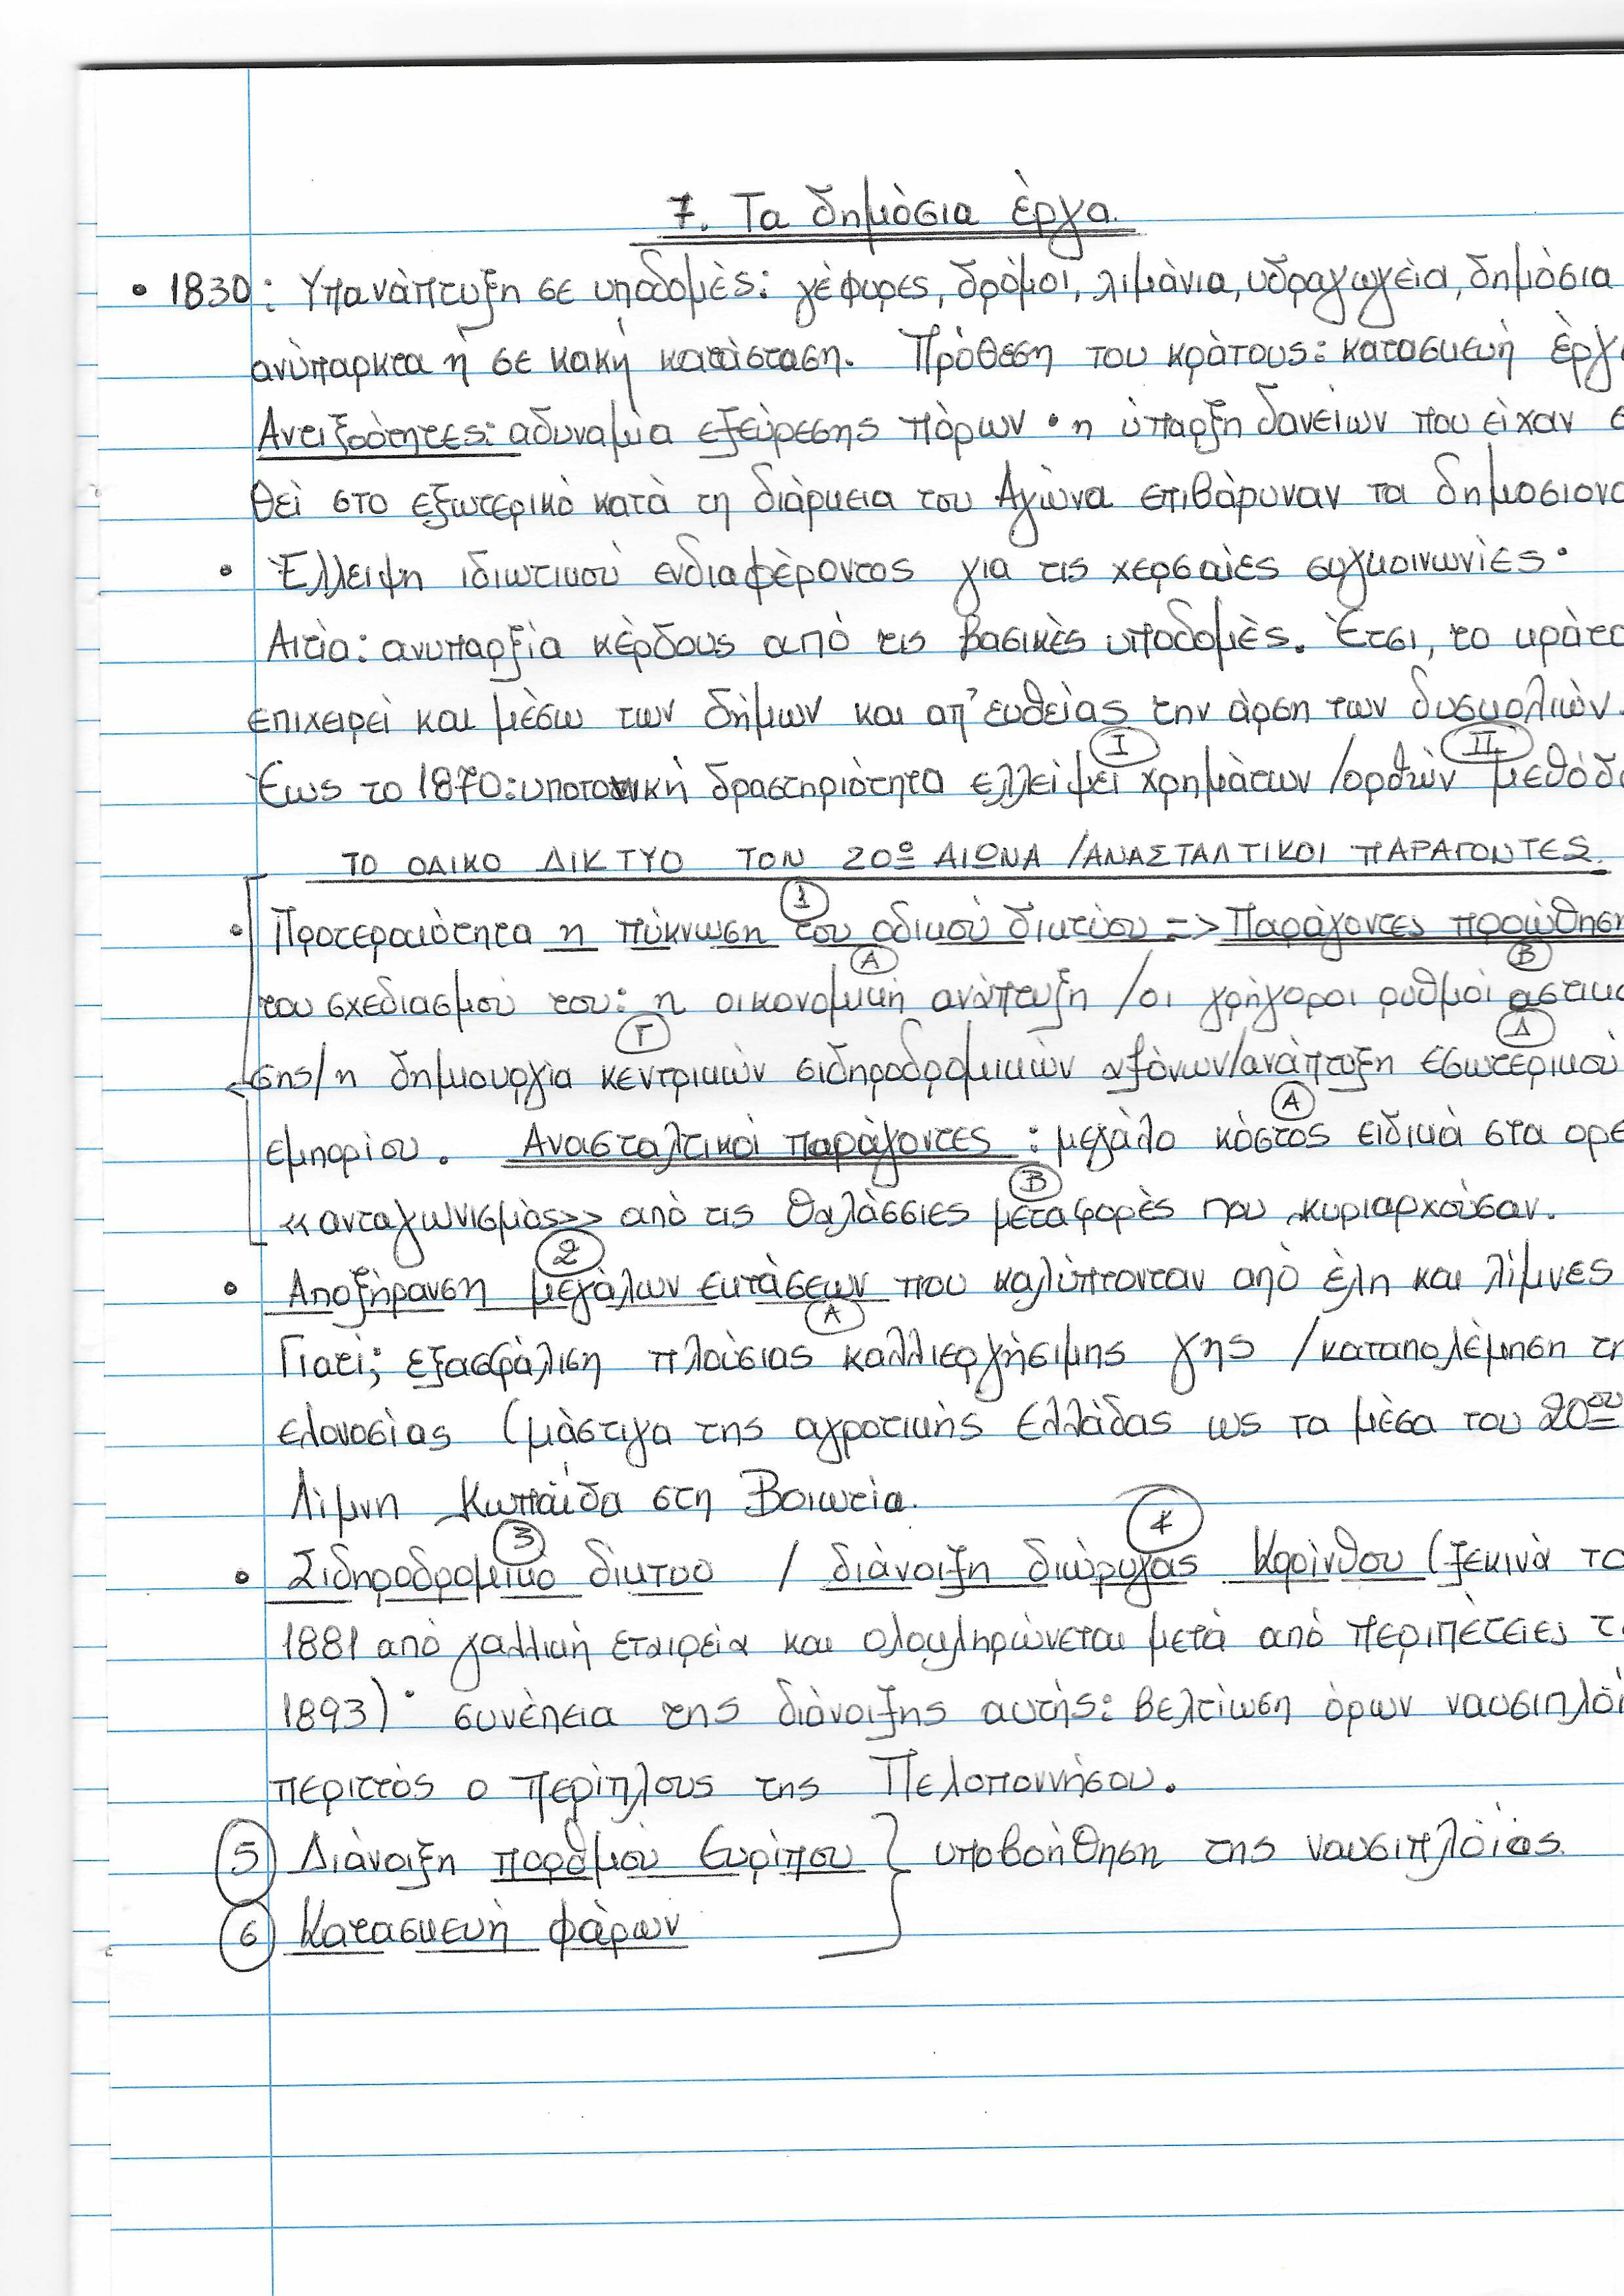 7. Τα δημόσια έργα.
• 1830: Υπανάπτυξη σε υποδομές: γέφυρες, δρόμοι, λιμάνια, υδραγωγεία, δημόσια
ανύπαρκτα ή σε κακή κατάσταση. Πρόθεση του κράτους: κατασκευή έργ
Αντιξοότητες: αδυναμία εξεύρεσης πόρων • η ύπαρξη δανείων που είχαν
θεί στο εξωτερικό κατά τη διάρκεια του Αγώνα επιβάρυναν τα δημοσιονο
• Έλλειψη ιδιωτικού ενδιαφέροντος για τις χερσαίες συγκοινωνίες •
Αιτία: ανυπαρξία κέρδους από τις βασικές υποδομές. Έτσι, το κράτο
επιχειρεί και μέσω των δήμων και απ' ευθείας την άρση των δυσκολιών.
I II
Έως το 1870: υποτονική δραστηριότητα ελλείψει χρημάτων / ορθών μεθόδ
ΤΟ ΟΔΙΚΟ ΔΙΚΤΥΟ ΤΟΝ 20ο ΑΙΩΝΑ / ΑΝΑΣΤΑΛΤΙΚΟΙ ΠΑΡΑΓΟΝΤΕΣ.
1
• Προτεραιότητα η πύκνωση του οδικού δικτύου => Παράγοντες προώθηση
Α Β
του σχεδιασμού του: η οικονομική ανάπτυξη / οι γρήγοροι ρυθμοί αστικο
Γ Δ
σης / η δημιουργία κεντρικών σιδηροδρομικών αξόνων / ανάπτυξη εσωτερικού
Α
εμπορίου. Ανασταλτικοί παράγοντες: μεγάλο κόστος ειδικά στα ορε
Β
«ανταγωνισμός» από τις θαλάσσιες μεταφορές που κυριαρχούσαν.
2
• Αποξήρανση μεγάλων εκτάσεων που καλύπτονταν από έλη και λίμνες
Α
Γιατί; εξασφάλιση πλούσιας καλλιεργήσιμης γης / καταπολέμηση τη
ελονοσίας (μάστιγα της αγροτικής Ελλάδας ως τα μέσα του 20ου
Λίμνη Κωπαΐδα στη Βοιωτία.
3 4
• Σιδηροδρομικό δίκτυο / διάνοιξη διώρυγας Κορίνθου (ξεκινά το
1881 από γαλλική εταιρεία και ολοκληρώνεται μετά από περιπέτειες τ
1893) • συνέπεια της διάνοιξης αυτής: βελτίωση όρων ναυσιπλοΐ
περιττός ο περίπλους της Πελοποννήσου.
5 Διάνοιξη πορθμού Ευρίπου } υποβοήθηση της ναυσιπλοΐας.
6 Κατασκευή φάρων